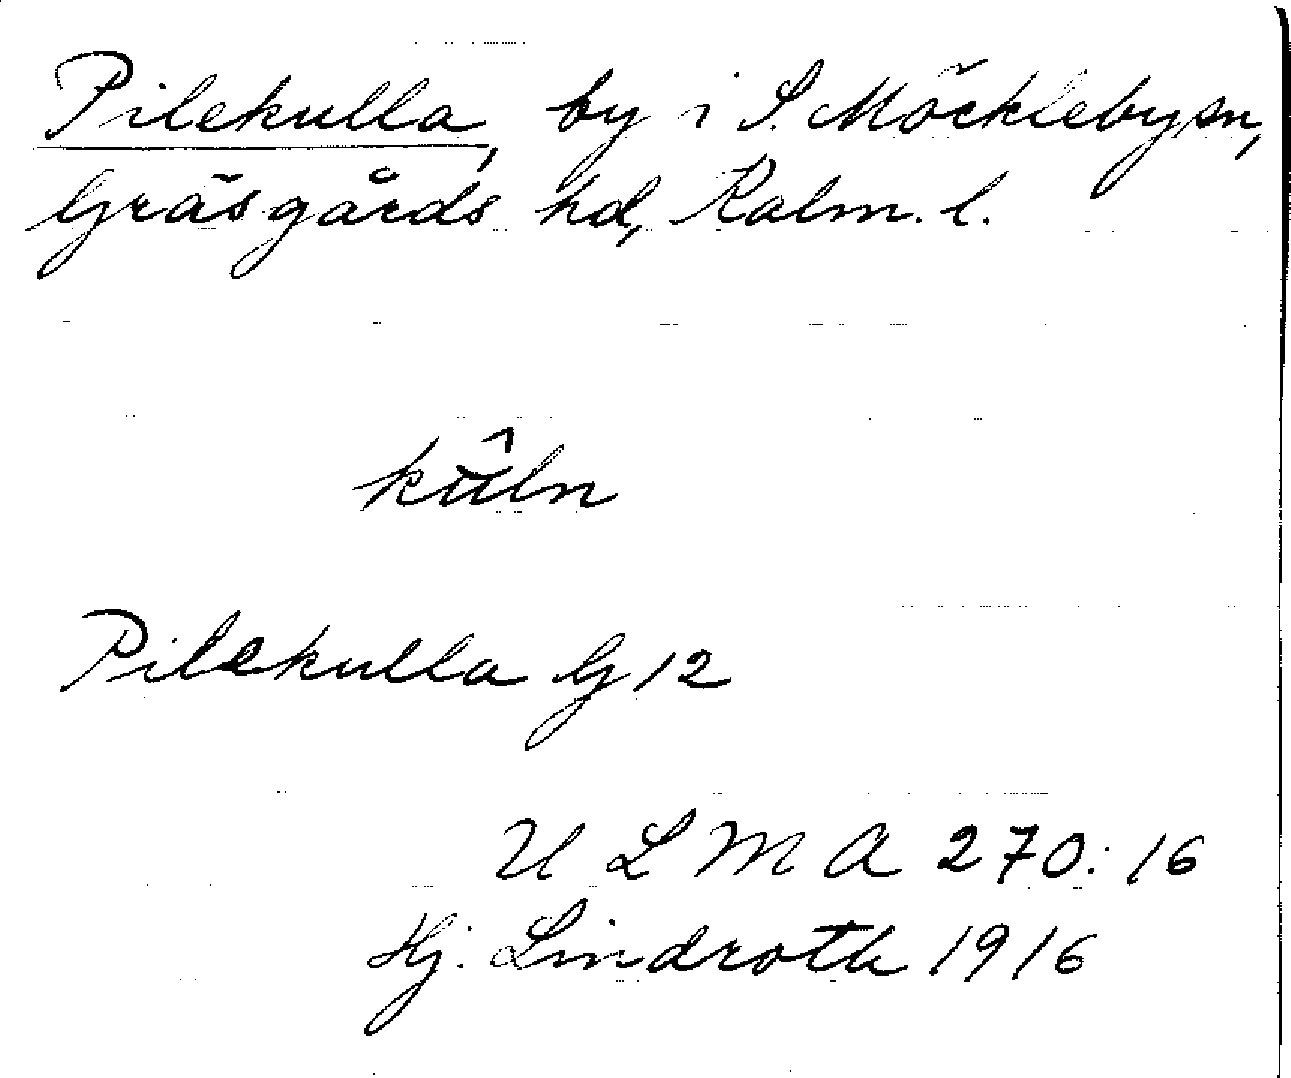 Pilekulla, by i S. Möcklebysn,
Gräsgårds hd, Kalm. l.
Pilekulla G 12
U L M A 270:16
Hj. Lindroth 1916